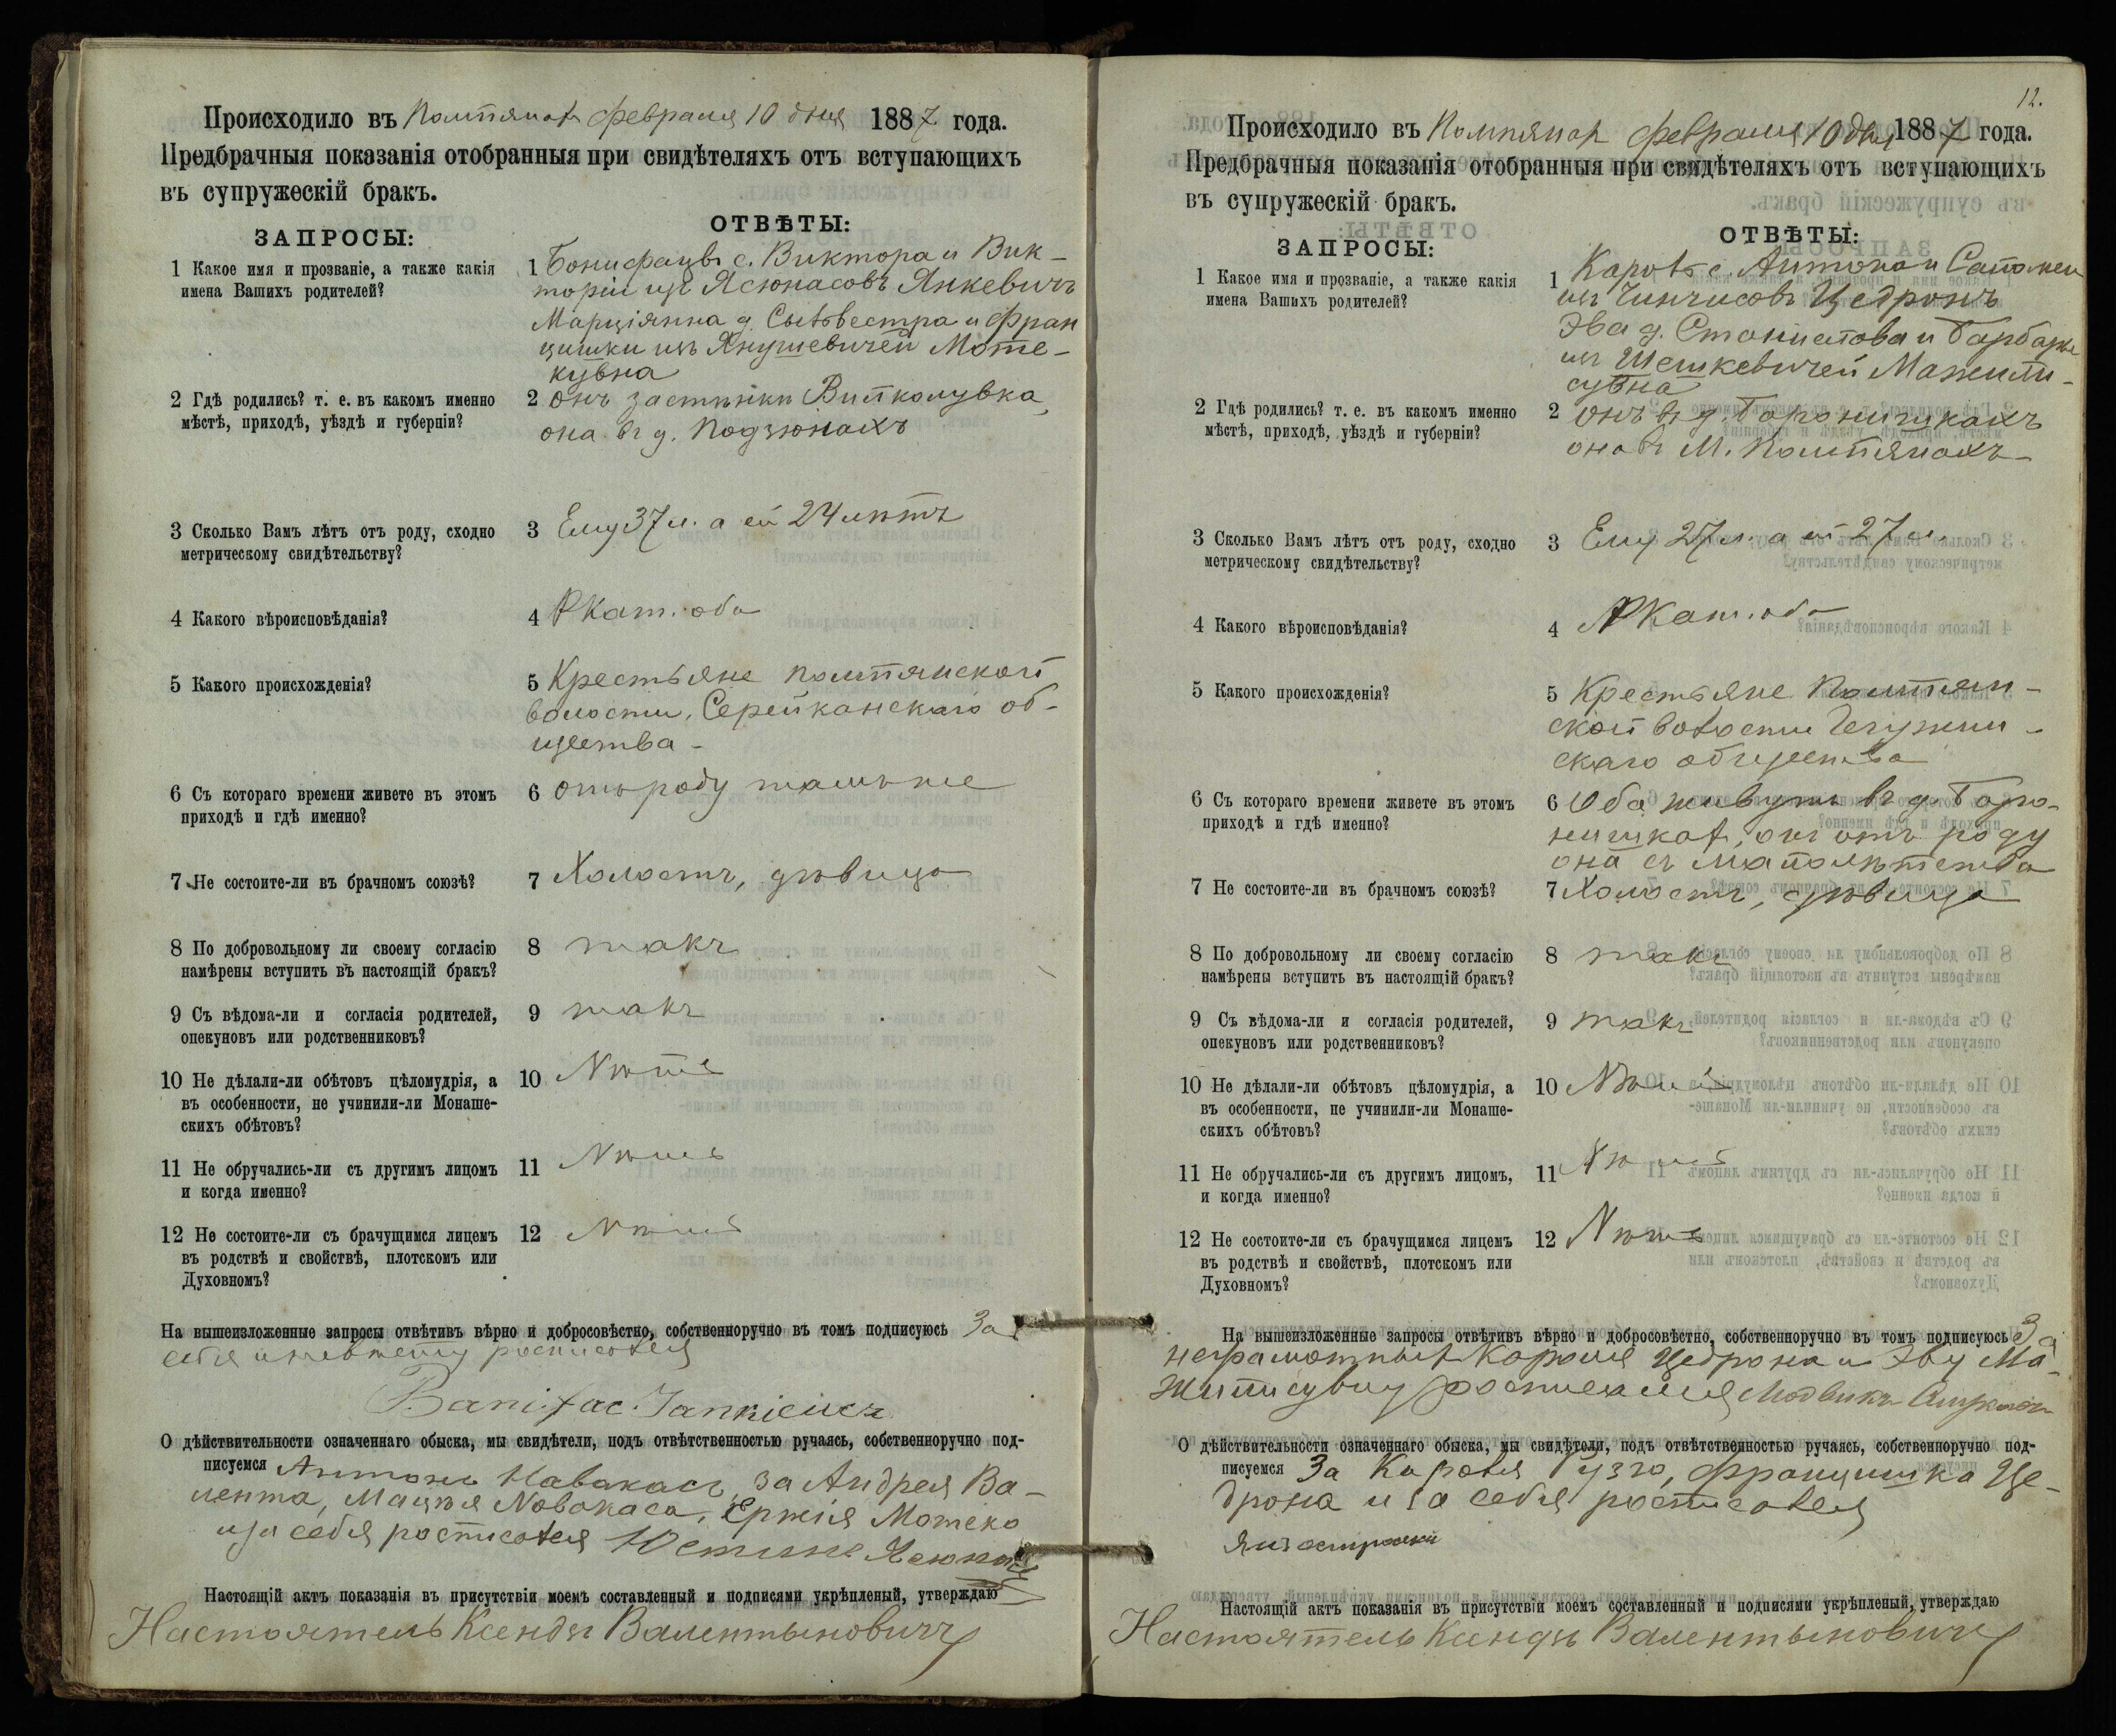 Происходило въ Помпянах февраля 10 дня 1887 года.
Предбрачныя показанія отобранныя при свидѣтеляхъ отъ вступающихъ
въ супружескій бракъ.
ЗАПРОСЫ:
ОТВѢТЫ:
1 Какое имя и прозваніе, а также какія
имена Вашихъ родителей?
1 Бонифацы с. Виктора и Вик-
торіи изъ Ясюнасовъ Янкевичъ
Марціянна д. Сильвестра и Фран
цишки изъ Янушевичей Моте-
кувна
2 Гдѣ родились? т. е. въ какомъ именно
мѣстѣ, приходѣ, уѣздѣ и губерніи?
2 онъ застѣнки
она въ д. Подзюнахъ
3 Сколько Вамъ лѣтъ отъ роду, сходно
метрическому свидѣтельству?
3 Ему 37 л. а ей 24 лѣтъ
4 Какого вѣроисповѣданія?
4 РКат. оба
5 Какого происхожденія?
5 Крестьяне помпянской
волости, Серейканскаго об-
щества -
6 Съ котораго времени живете въ этомъ
приходѣ и гдѣ именно?
6 отъ роду тамъ же
7 Не состоите-ли въ брачномъ союзѣ?
7 Холостъ, дѣвица
8 По добровольному ли своему согласію
намѣрены вступить въ настоящій бракъ?
8 такъ
9 Съ вѣдома-ли и согласія родителей,
опекуновъ или родственниковъ?
9 такъ
10 Не дѣлали-ли обѣтовъ цѣломудрія, а
въ особенности, не учинили-ли Монаше-
скихъ обѣтовъ?
10 Нѣтъ
11 Не обручались-ли съ другимъ лицомъ
и когда именно?
11 Нѣтъ
12 Не состоите-ли съ брачущимся лицемъ
въ родствѣ и свойствѣ, плотскомъ или
Духовномъ?
12 Нѣтъ
На вышеизложенные запросы отвѣтивъ вѣрно и добросовѣстно, собственноручно въ томъ подписуюсь За
себя и невѣсту росписался
Banifac. Jankiewicz
О дѣйствительности означеннаго обыска, мы свидѣтели, подъ отвѣтственностью ручаясь, собственноручно под-
писуемся Антонъ Навакасъ, за Андрея Ва-
лента, Мацѣя Новокаса, Ержія Мотеко
и за себя росписался Юстинъ
Настоящій актъ показанія въ присутствіи моемъ составленный и подписями укрѣпленый, утверждаю
Настоятель Ксендзъ Валентыновичъ
12.
Происходило въ Помпянах февраля 10 дня 1887 года.
Предбрачныя показанія отобранныя при свидѣтеляхъ отъ вступающихъ
въ супружескій бракъ.
ЗАПРОСЫ:
ОТВѢТЫ:
1 Какое имя и прозваніе, а также какія
имена Вашихъ родителей?
1 Кароль с. Антона и Саломеи
изъ Цедронъ
Эва д. Станислова и Барбары
изъ Шешкевичей Мажили-
сувна
2 Гдѣ родились? т. е. въ какомъ именно
мѣстѣ, приходѣ, уѣздѣ и губерніи?
2 онъ въ д. Боронишкахъ
она въ М. Помпянахъ
3 Сколько Вамъ лѣтъ отъ роду, сходно
метрическому свидѣтельству?
3 Ему 27 л. а ей 27 л.
4 Какого вѣроисповѣданія?
4 РКат. оба
5 Какого происхожденія?
5 Крестьяне Помпян-
ской волости
скаго общества
6 Съ котораго времени живете въ этомъ
приходѣ и гдѣ именно?
6 Оба живутъ въ д. Боро-
нишках, онъ отъ роду
она съ малолѣтства
7 Не состоите-ли въ брачномъ союзѣ?
7 Холостъ, дѣвица
8 По добровольному ли своему согласію
намѣрены вступить въ настоящій бракъ?
8 такъ
9 Съ вѣдома-ли и согласія родителей,
опекуновъ или родственниковъ?
9 такъ
10 Не дѣлали-ли обѣтовъ цѣломудрія, а
въ особенности, не учинили-ли Монаше-
скихъ обѣтовъ?
10 Нѣтъ
11 Не обручались-ли съ другимъ лицомъ,
и когда именно?
11 Нѣтъ
12 Не состоите-ли съ брачущимся лицемъ
въ родствѣ и свойствѣ, плотскомъ или
Духовномъ?
12 Нѣтъ
На вышеизложенные запросы отвѣтивъ вѣрно и добросовѣстно, собственноручно въ томъ подписуюсь За
неграмотных Кароля Цедрона и Эву Ма-
жилисувну росписался Людвикъ
О дѣйствительности означеннаго обыска, мы свидѣтели, подъ отвѣтственностью ручаясь, собственноручно под-
писуемся За Кароля Рузго, Францишка Це-
дрона и за себя росписался
Настоящій актъ показанія въ присутствіи моемъ составленный и подписями укрѣпленый, утверждаю
Настоятель Ксендзъ Валентыновичъ